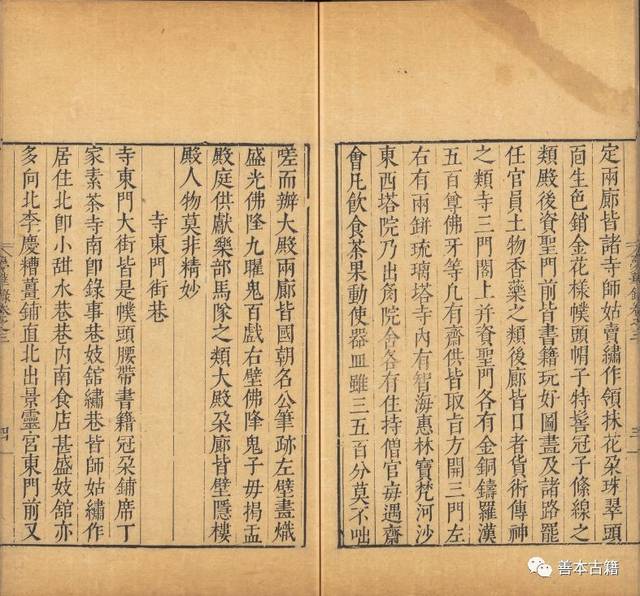 定兩廊皆諸寺師姑賣繡作領抹花朶珠翠頭
靣生色銷金花樣幞頭帽子特髻冠子條線之
類殿後資聖門前皆書籍玩好圖畫及諸路罷
任官員土物香藥之類後廊皆日者貨術傳神
之類寺三門閣上并資聖門各有金銅鑄羅漢
五百尊佛牙等凡有齋供皆取旨方開三門左
右有兩缾琉璃塔寺內有智海惠林寶梵河沙
東西塔院乃出角院舍各有住持僧官每遇齋
會凡飲食茶果動使器皿雖三五百分莫不咄
嗟而辦大殿兩廊皆國朝名公筆跡左壁畫熾
盛光佛降九曜鬼百戲右壁佛降鬼子毋揭盂
殿庭供獻樂部馬隊之類大殿朶廊皆壁隱樓
殿人物莫非精妙
寺東門街巷
寺東門大街皆是幞頭腰帶書籍冠朶鋪席丁
家素茶寺南卽錄事巷妓舘繡巷皆師姑繡作
居住北卽小甜水巷巷內南食店甚盛妓舘亦
多向北李慶糟薑鋪直北出景靈宮東門前又
善本古籍